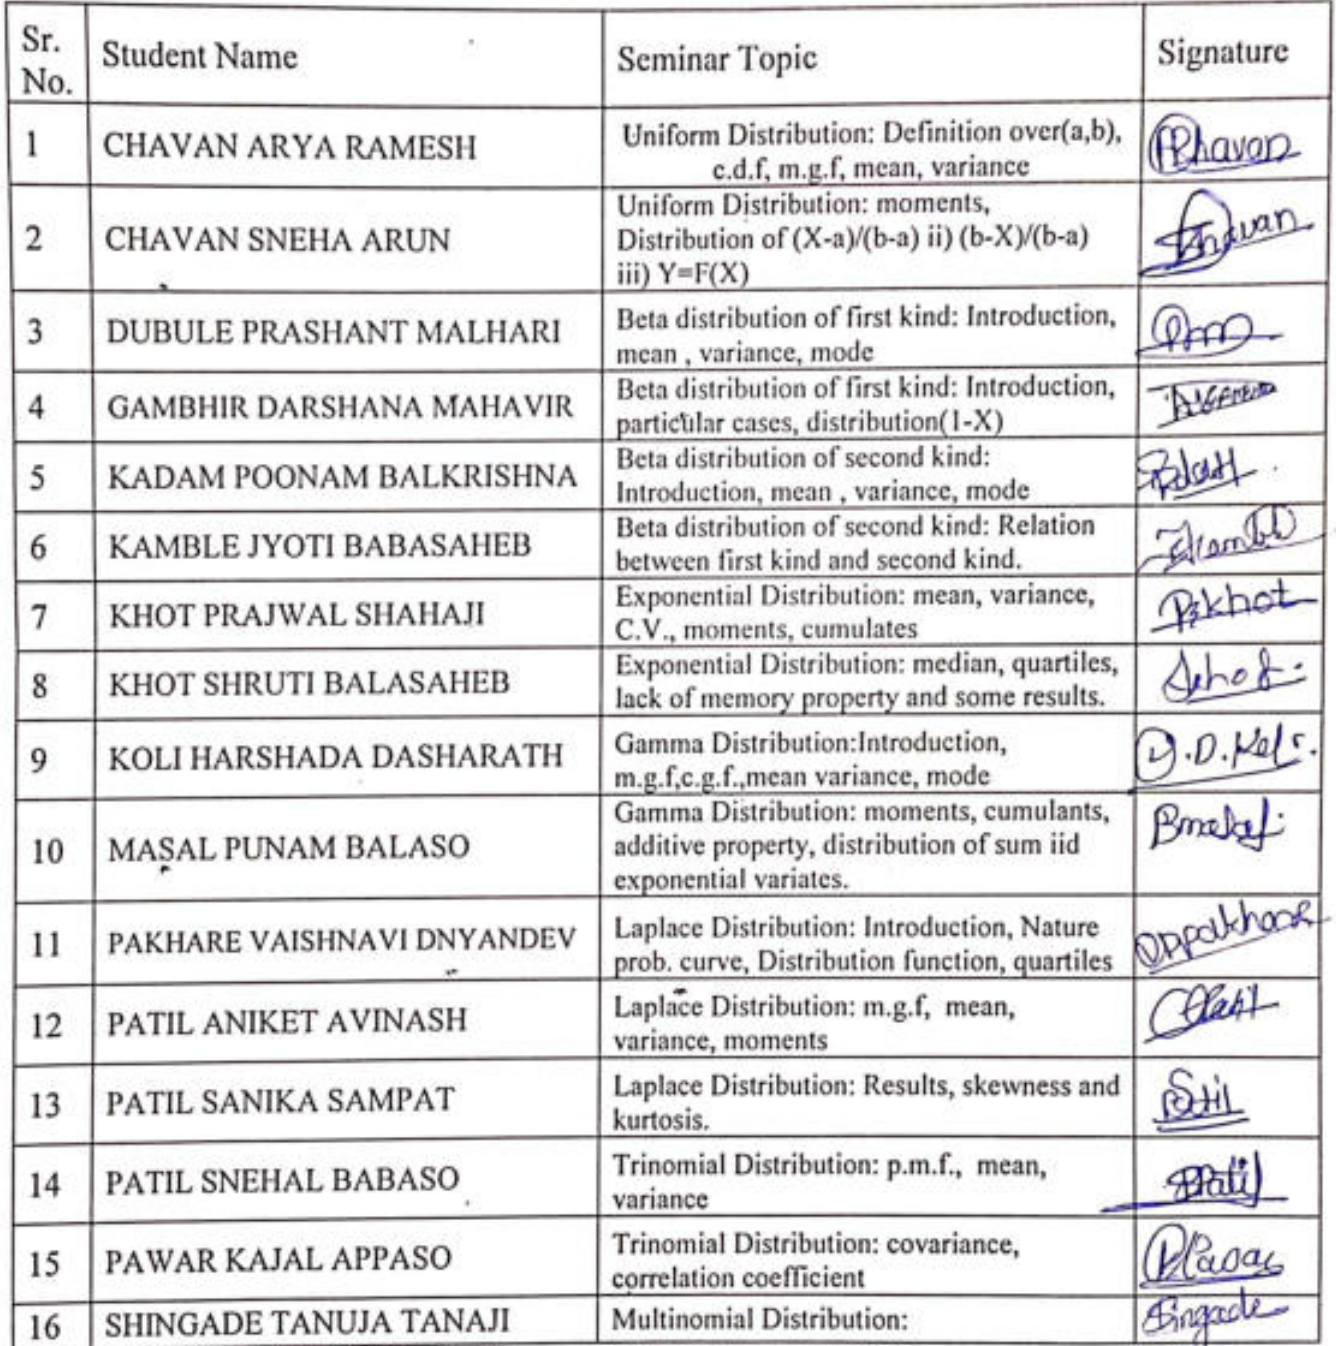 Sr. No. Student Name Seminar Topic Signature
1 CHAVAN ARYA RAMESH Uniform Distribution: Definition over(a,b),
c.d.f, m.g.f, mean, variance
2 CHAVAN SNEHA ARUN Uniform Distribution: moments,
Distribution of (X-a)/(b-a) ii) (b-X)/(b-a)
iii) Y=F(X)
3 DUBULE PRASHANT MALHARI Beta distribution of first kind: Introduction,
mean , variance, mode
4 GAMBHIR DARSHANA MAHAVIR Beta distribution of first kind: Introduction,
particular cases, distribution(1-X)
5 KADAM POONAM BALKRISHNA Beta distribution of second kind:
Introduction, mean , variance, mode
6 KAMBLE JYOTI BABASAHEB Beta distribution of second kind: Relation
between first kind and second kind.
7 KHOT PRAJWAL SHAHAJI Exponential Distribution: mean, variance,
C.V., moments, cumulates
8 KHOT SHRUTI BALASAHEB Exponential Distribution: median, quartiles,
lack of memory property and some results.
9 KOLI HARSHADA DASHARATH Gamma Distribution:Introduction,
m.g.f,c.g.f.,mean variance, mode
10 MASAL PUNAM BALASO Gamma Distribution: moments, cumulants,
additive property, distribution of sum iid
exponential variates.
11 PAKHARE VAISHNAVI DNYANDEV Laplace Distribution: Introduction, Nature
prob. curve, Distribution function, quartiles
12 PATIL ANIKET AVINASH Laplace Distribution: m.g.f, mean,
variance, moments
13 PATIL SANIKA SAMPAT Laplace Distribution: Results, skewness and
kurtosis.
14 PATIL SNEHAL BABASO Trinomial Distribution: p.m.f., mean,
variance
15 PAWAR KAJAL APPASO Trinomial Distribution: covariance,
correlation coefficient
16 SHINGADE TANUJA TANAJI Multinomial Distribution: